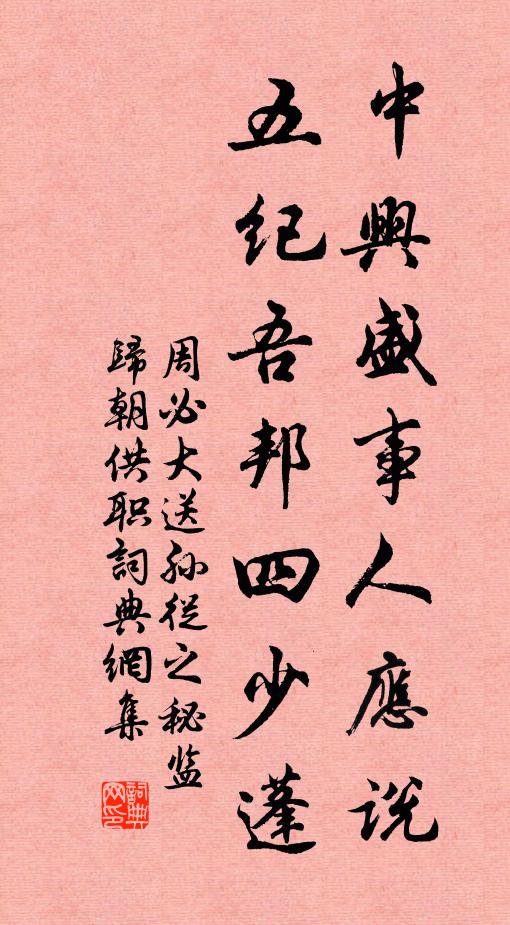 中興盛事人應説
五纪吾邦四少蓬
周必大送孙從之秘监
歸朝供职詞典網集
詞典网印